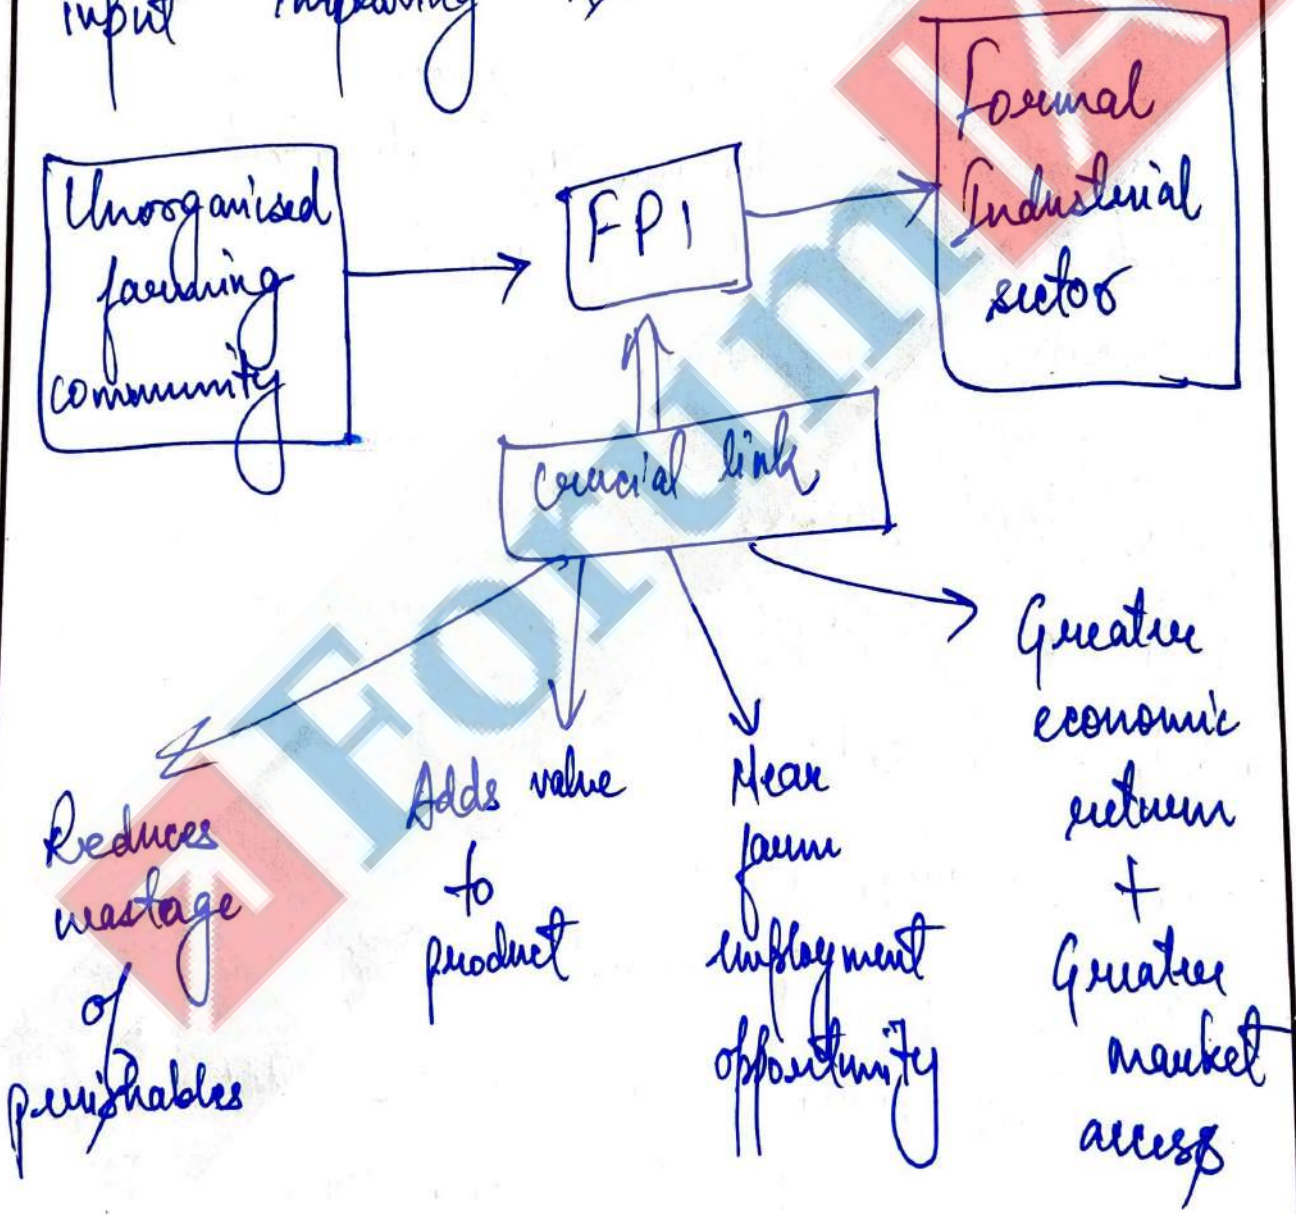 input
Unorganised
farming
community
FPI
Formal
Industrial
sector
crucial link
Reduces
wastage
of
perishables
Adds value
to
product
Near
farm
employment
opportunity
Greater
economic
return
+
Greater
market
access
Forum IA